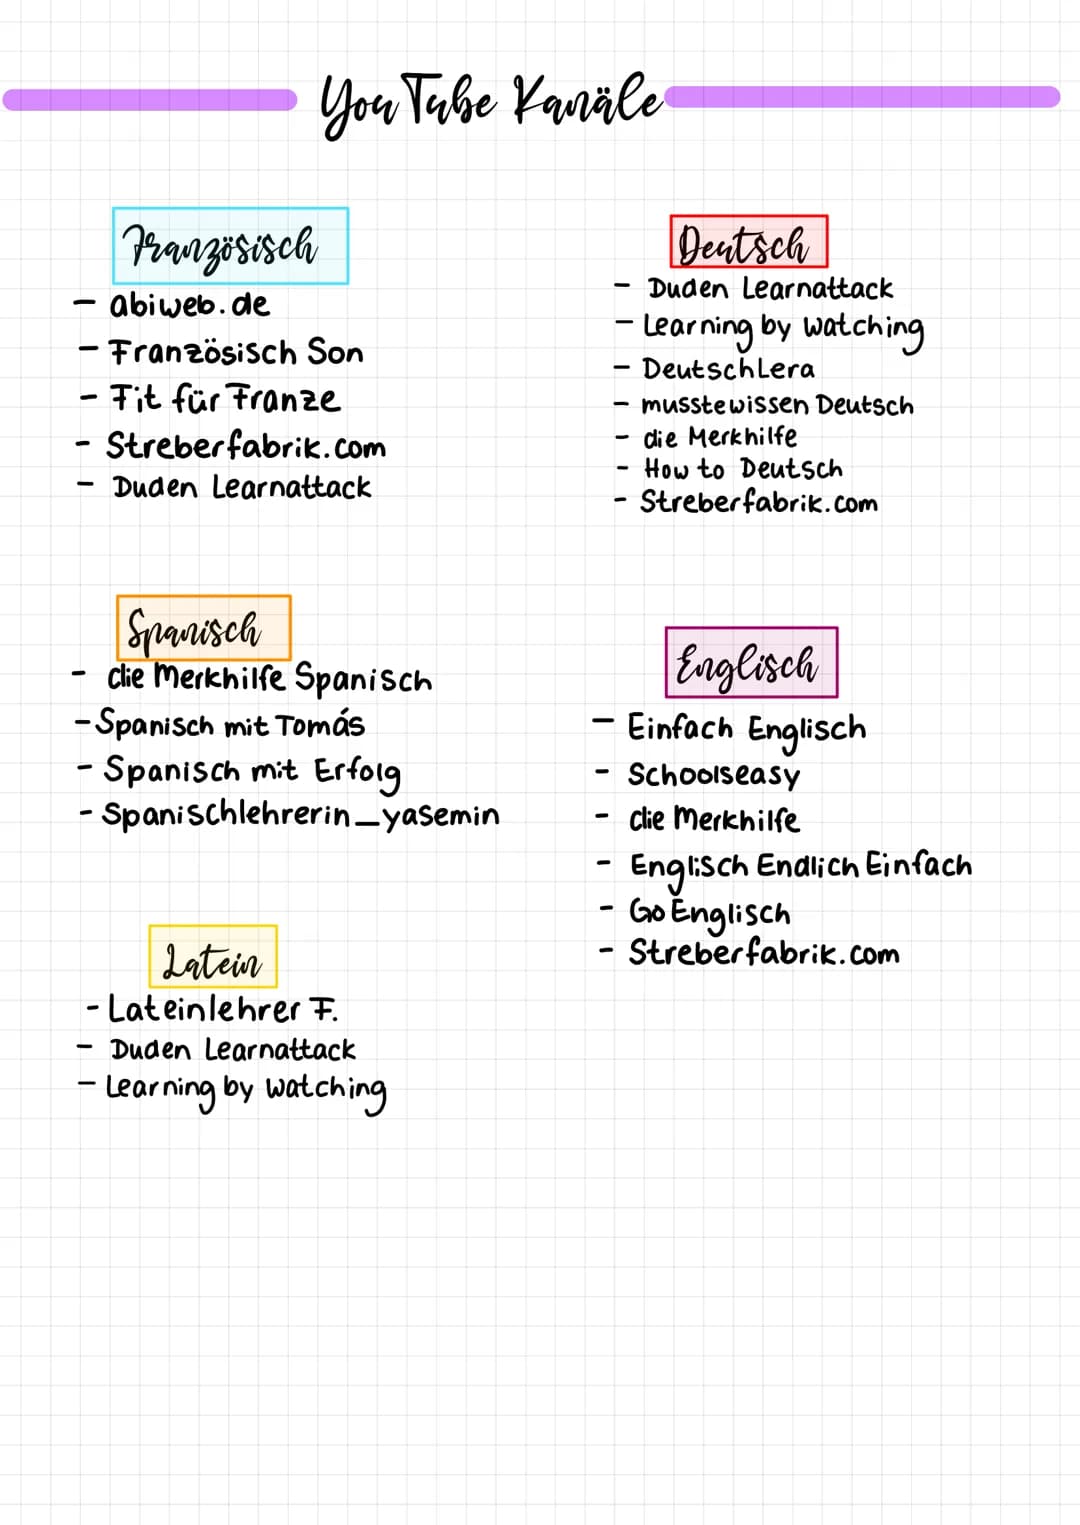 YouTube Kanäle
Französisch
- abiweb.de
- Französisch Son
- Fit für Franze
- Streberfabrik.com
- Duden Learnattack
Deutsch
- Duden Learnattack
- Learning by watching
- DeutschLera
- musstewissen Deutsch
- die Merkhilfe
- How to Deutsch
- Streberfabrik.com
Spanisch
- die Merkhilfe Spanisch
- Spanisch mit Tomás
- Spanisch mit Erfolg
- Spanischlehrerin_yasemin
Englisch
- Einfach Englisch
- Schoolseasy
- die Merkhilfe
- Englisch Endlich Einfach
- Go Englisch
- Streberfabrik.com
Latein
- Lateinlehrer F.
- Duden Learnattack
- Learning by watching